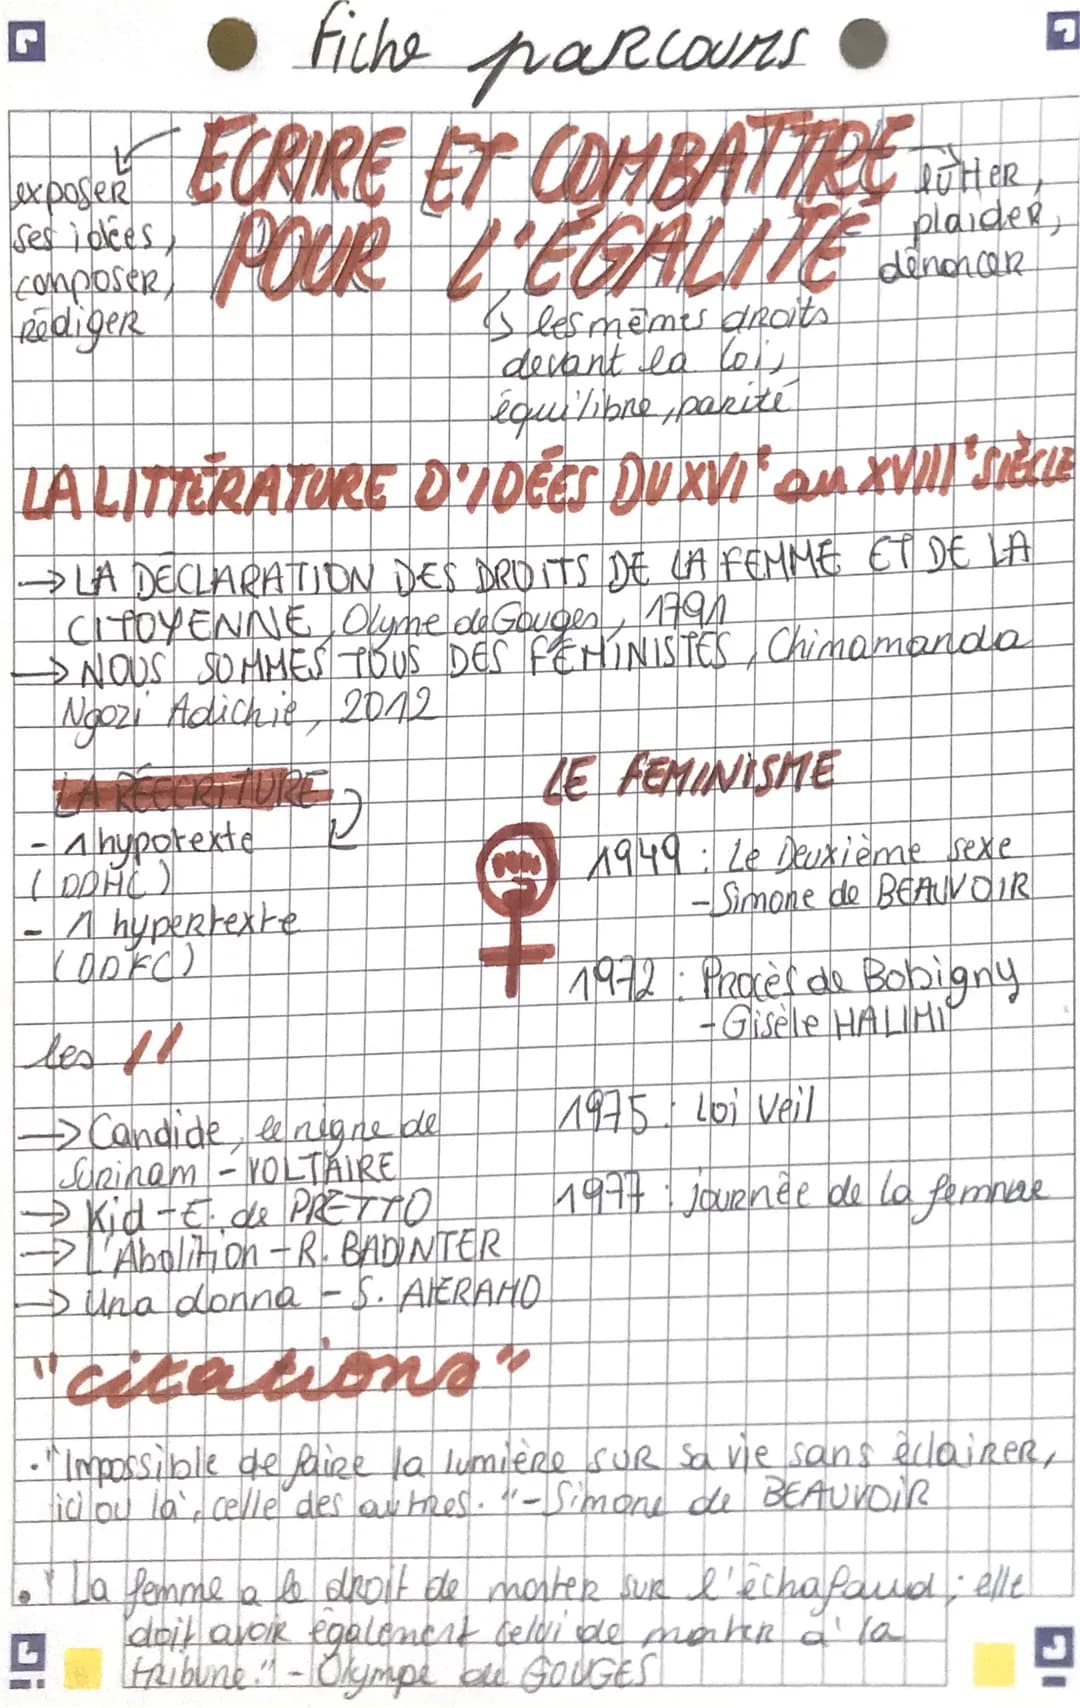 fiche parcours
ECRIRE ET COMBATTRE
POUR L'ÉGALITÉ
exposer
ses idées,
composer,
rédiger
lutter,
plaider,
dénoncer
les mêmes droits
devant la loi,
équilibre, parité
LA LITTÉRATURE D'IDÉES DU XVIe au XVIIIe SIÈCLE
→ LA DÉCLARATION DES DROITS DE LA FEMME ET DE LA
CITOYENNE, Olyme de Gouges, 1791
→ NOUS SOMMES TOUS DES FÉMINISTES, Chimamanda
Ngozi Adichie, 2012
LA RÉÉCRITURE
- 1 hypotexte
(DDHC)
- 1 hypertexte
(DDFC)
LE FEMINISME
1949 : Le Deuxième sexe
- Simone de BEAUVOIR
1972 : Procès de Bobigny
- Gisèle HALIMI
1975 : Loi Veil
1977 : journée de la femme
les //
→ Candide, le nègre de
Surinam - VOLTAIRE
→ Kid - E. de PRETTO
→ L'Abolition - R. BADINTER
→ Una donna - S. AIERAMO
"citations"
. "Impossible de faire la lumière sur sa vie sans éclairer,
ici ou là, celle des autres." - Simone de BEAUVOIR
. "La femme a le droit de monter sur l'échafaud ; elle
doit avoir également celui de monter à la
tribune." - Olympe de GOUGES